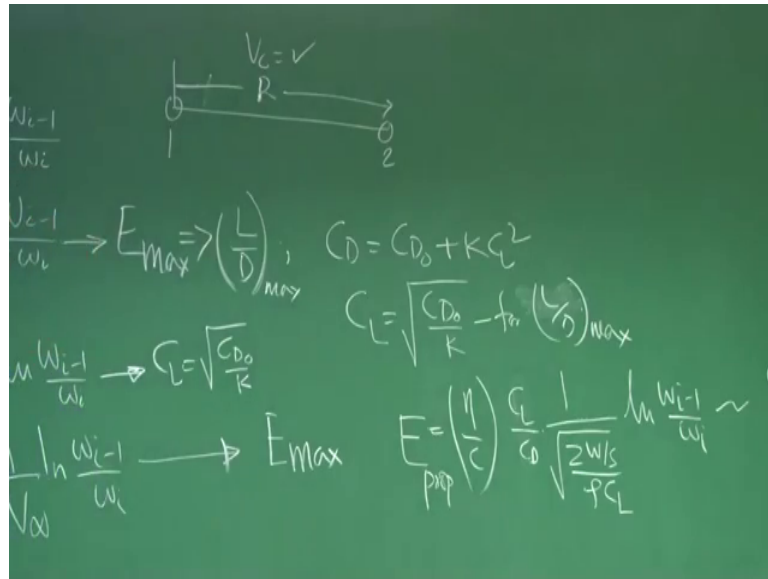 V_c = ✓
R
1 2
W_{i-1}/W_i
W_{i-1}/W_i → E_max => (L/D)_max ; C_D = C_{D_0} + K C_L^2
C_L = √(C_{D_0}/K) - for (L/D)_max
ln W_{i-1}/W_i → C_L = √(C_{D_0}/K)
1/V_∞ ln W_{i-1}/W_i → E_max
E_prop = (η/c) C_L/C_D 1/√((2W/S)/(ρC_L)) ln W_{i-1}/W_i ~